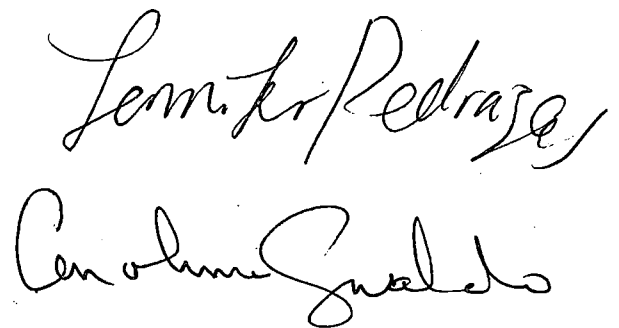 Jennifer Pedraza
Caroline Giraldo